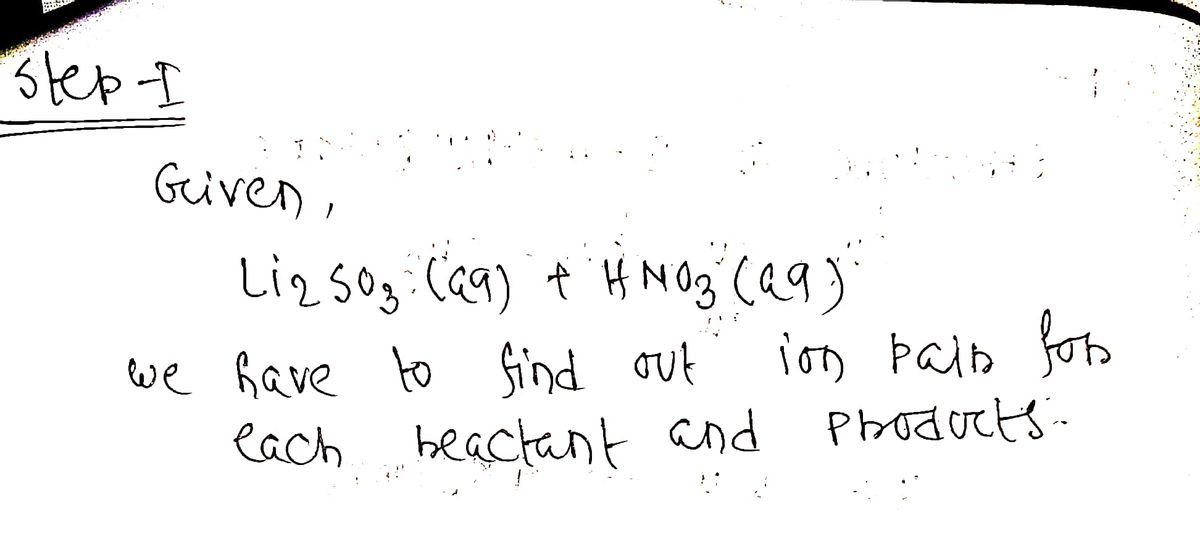 Step-I
Given,
Li2SO3 (aq) + HNO3 (aq)
we have to find out ion pair for
each reactant and products.